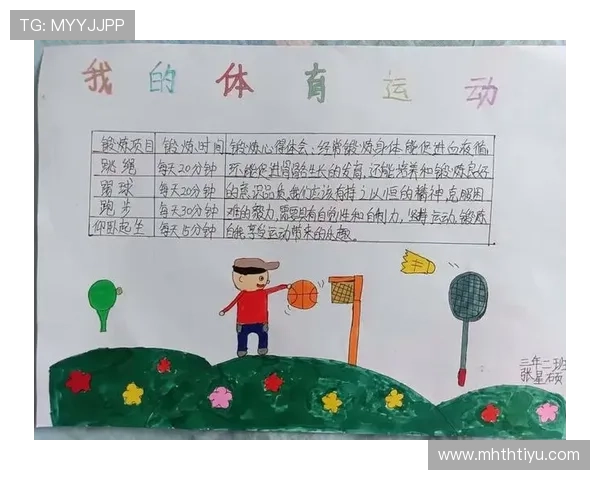 TG: MYYJJPP
我的体育运动
锻炼项目 锻炼时间 锻炼心得体会:经常锻炼身体能促进血液循
跳绳 每天20分钟 环,能促进骨骼生长的发育,还能培养和锻炼良好
踢球 每天20分钟 的意识品质,我们应该有持之以恒的精神,克服困
跑步 每天30分钟 难的毅力,需要具有自觉性和自制力,坚持运动,锻炼
仰卧起坐 每天15分钟 自我,享受运动带来的乐趣。
三年二班
张星硕
www.mhthtiyu.com